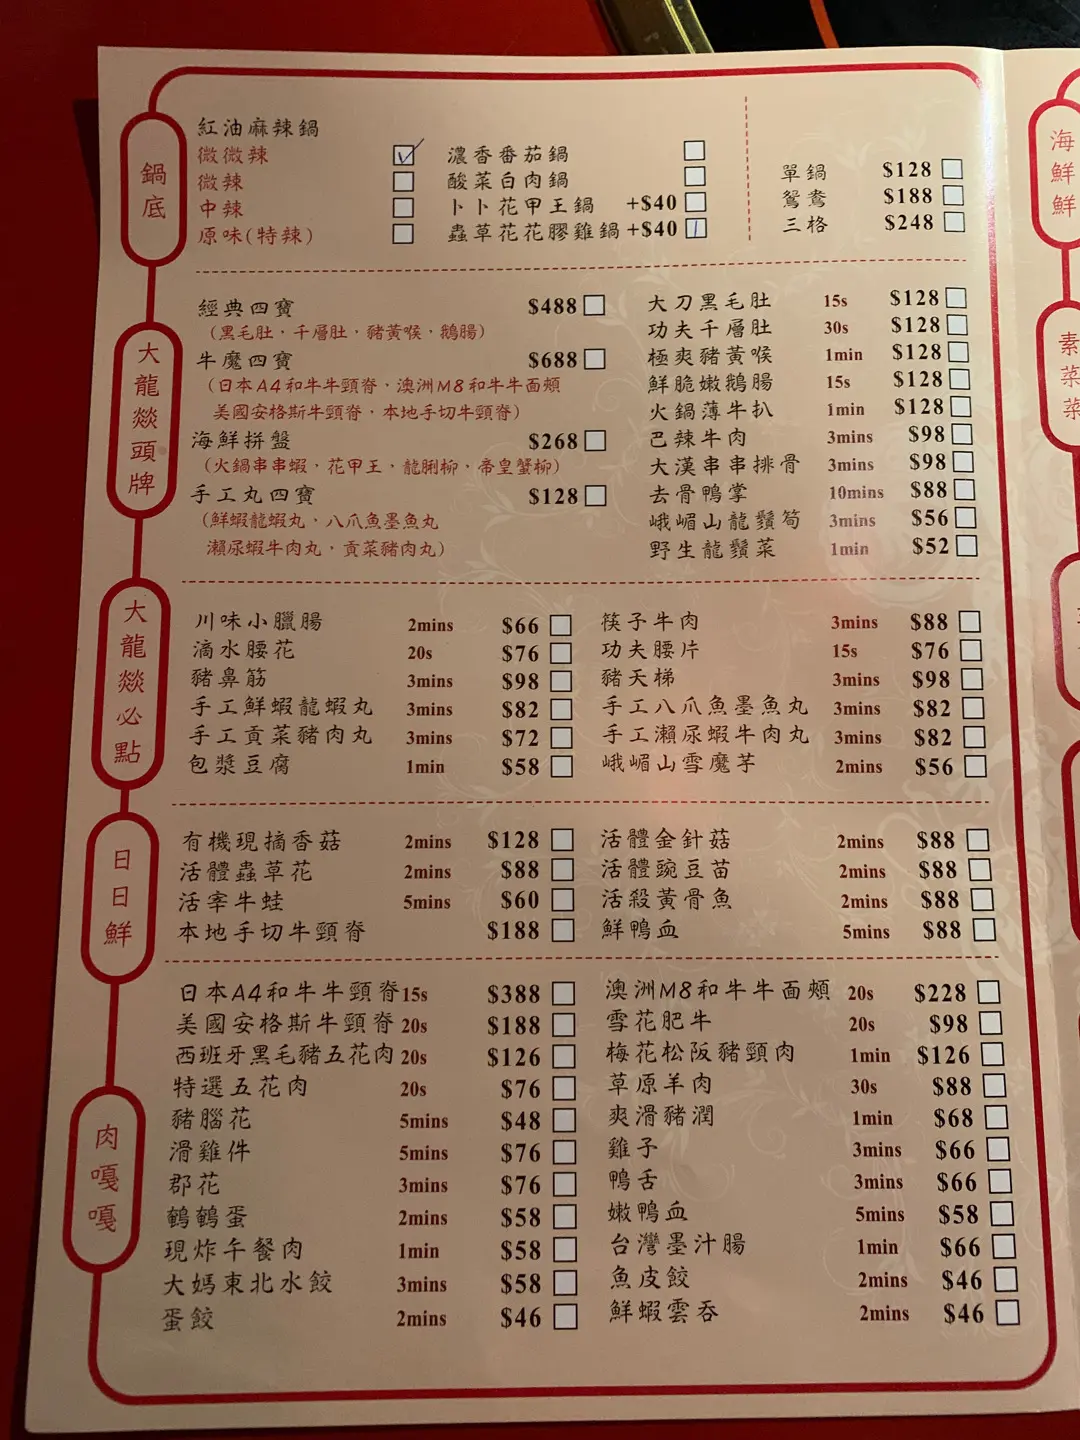 鍋底
紅油麻辣鍋
微微辣
微辣
中辣
原味(特辣)
濃香番茄鍋
酸菜白肉鍋
卜卜花甲王鍋 +$40
蟲草花花膠雞鍋 +$40
單鍋 $128
鴛鴦 $188
三格 $248
大龍燚頭牌
經典四寶 $488
(黑毛肚，千層肚，豬黃喉，鵝腸)
牛魔四寶 $688
(日本A4和牛牛頸脊，澳洲M8和牛牛面頰
美國安格斯牛頸脊，本地手切牛頸脊)
海鮮拼盤 $268
(火鍋串串蝦，花甲王，龍脷柳，帝皇蟹柳)
手工丸四寶 $128
(鮮蝦龍蝦丸，八爪魚墨魚丸
瀨尿蝦牛肉丸，貢菜豬肉丸)
大刀黑毛肚 15s $128
功夫千層肚 30s $128
極爽豬黃喉 1min $128
鮮脆嫩鵝腸 15s $128
火鍋薄牛扒 1min $128
巴辣牛肉 3mins $98
大漢串串排骨 3mins $98
去骨鴨掌 10mins $88
峨嵋山龍鬚筍 3mins $56
野生龍鬚菜 1min $52
大龍燚必點
川味小臘腸 2mins $66
滴水腰花 20s $76
豬鼻筋 3mins $98
手工鮮蝦龍蝦丸 3mins $82
手工貢菜豬肉丸 3mins $72
包漿豆腐 1min $58
筷子牛肉 3mins $88
功夫腰片 15s $76
豬天梯 3mins $98
手工八爪魚墨魚丸 3mins $82
手工瀨尿蝦牛肉丸 3mins $82
峨嵋山雪魔芋 2mins $56
日日鮮
有機現摘香菇 2mins $128
活體蟲草花 2mins $88
活宰牛蛙 5mins $60
本地手切牛頸脊 $188
活體金針菇 2mins $88
活體豌豆苗 2mins $88
活殺黃骨魚 2mins $88
鮮鴨血 5mins $88
肉嘎嘎
日本A4和牛牛頸脊 15s $388
美國安格斯牛頸脊 20s $188
西班牙黑毛豬五花肉 20s $126
特選五花肉 20s $76
豬腦花 5mins $48
滑雞件 5mins $76
郡花 3mins $76
鵪鶉蛋 2mins $58
現炸午餐肉 1min $58
大媽東北水餃 3mins $58
蛋餃 2mins $46
澳洲M8和牛牛面頰 20s $228
雪花肥牛 20s $98
梅花松阪豬頸肉 1min $126
草原羊肉 30s $88
爽滑豬潤 1min $68
雞子 3mins $66
鴨舌 3mins $66
嫩鴨血 5mins $58
台灣墨汁腸 1min $66
魚皮餃 2mins $46
鮮蝦雲吞 2mins $46
海鮮
素菜